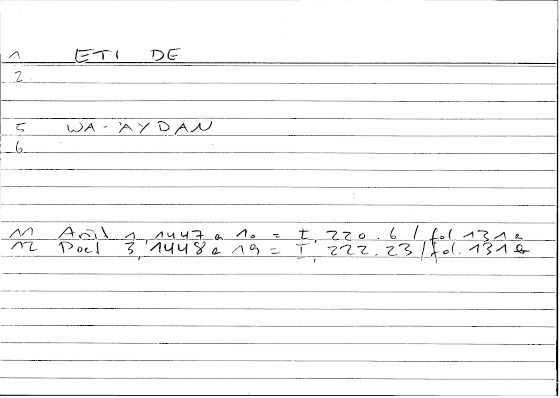 1 ETI DE
2
5 WA-'AYDAN
6
11 Anal 1, 1447 a 10 = I, 220.6 / fol 131a
12 Poet 3, 1448 a 19 = I, 222.23 / fol. 131b